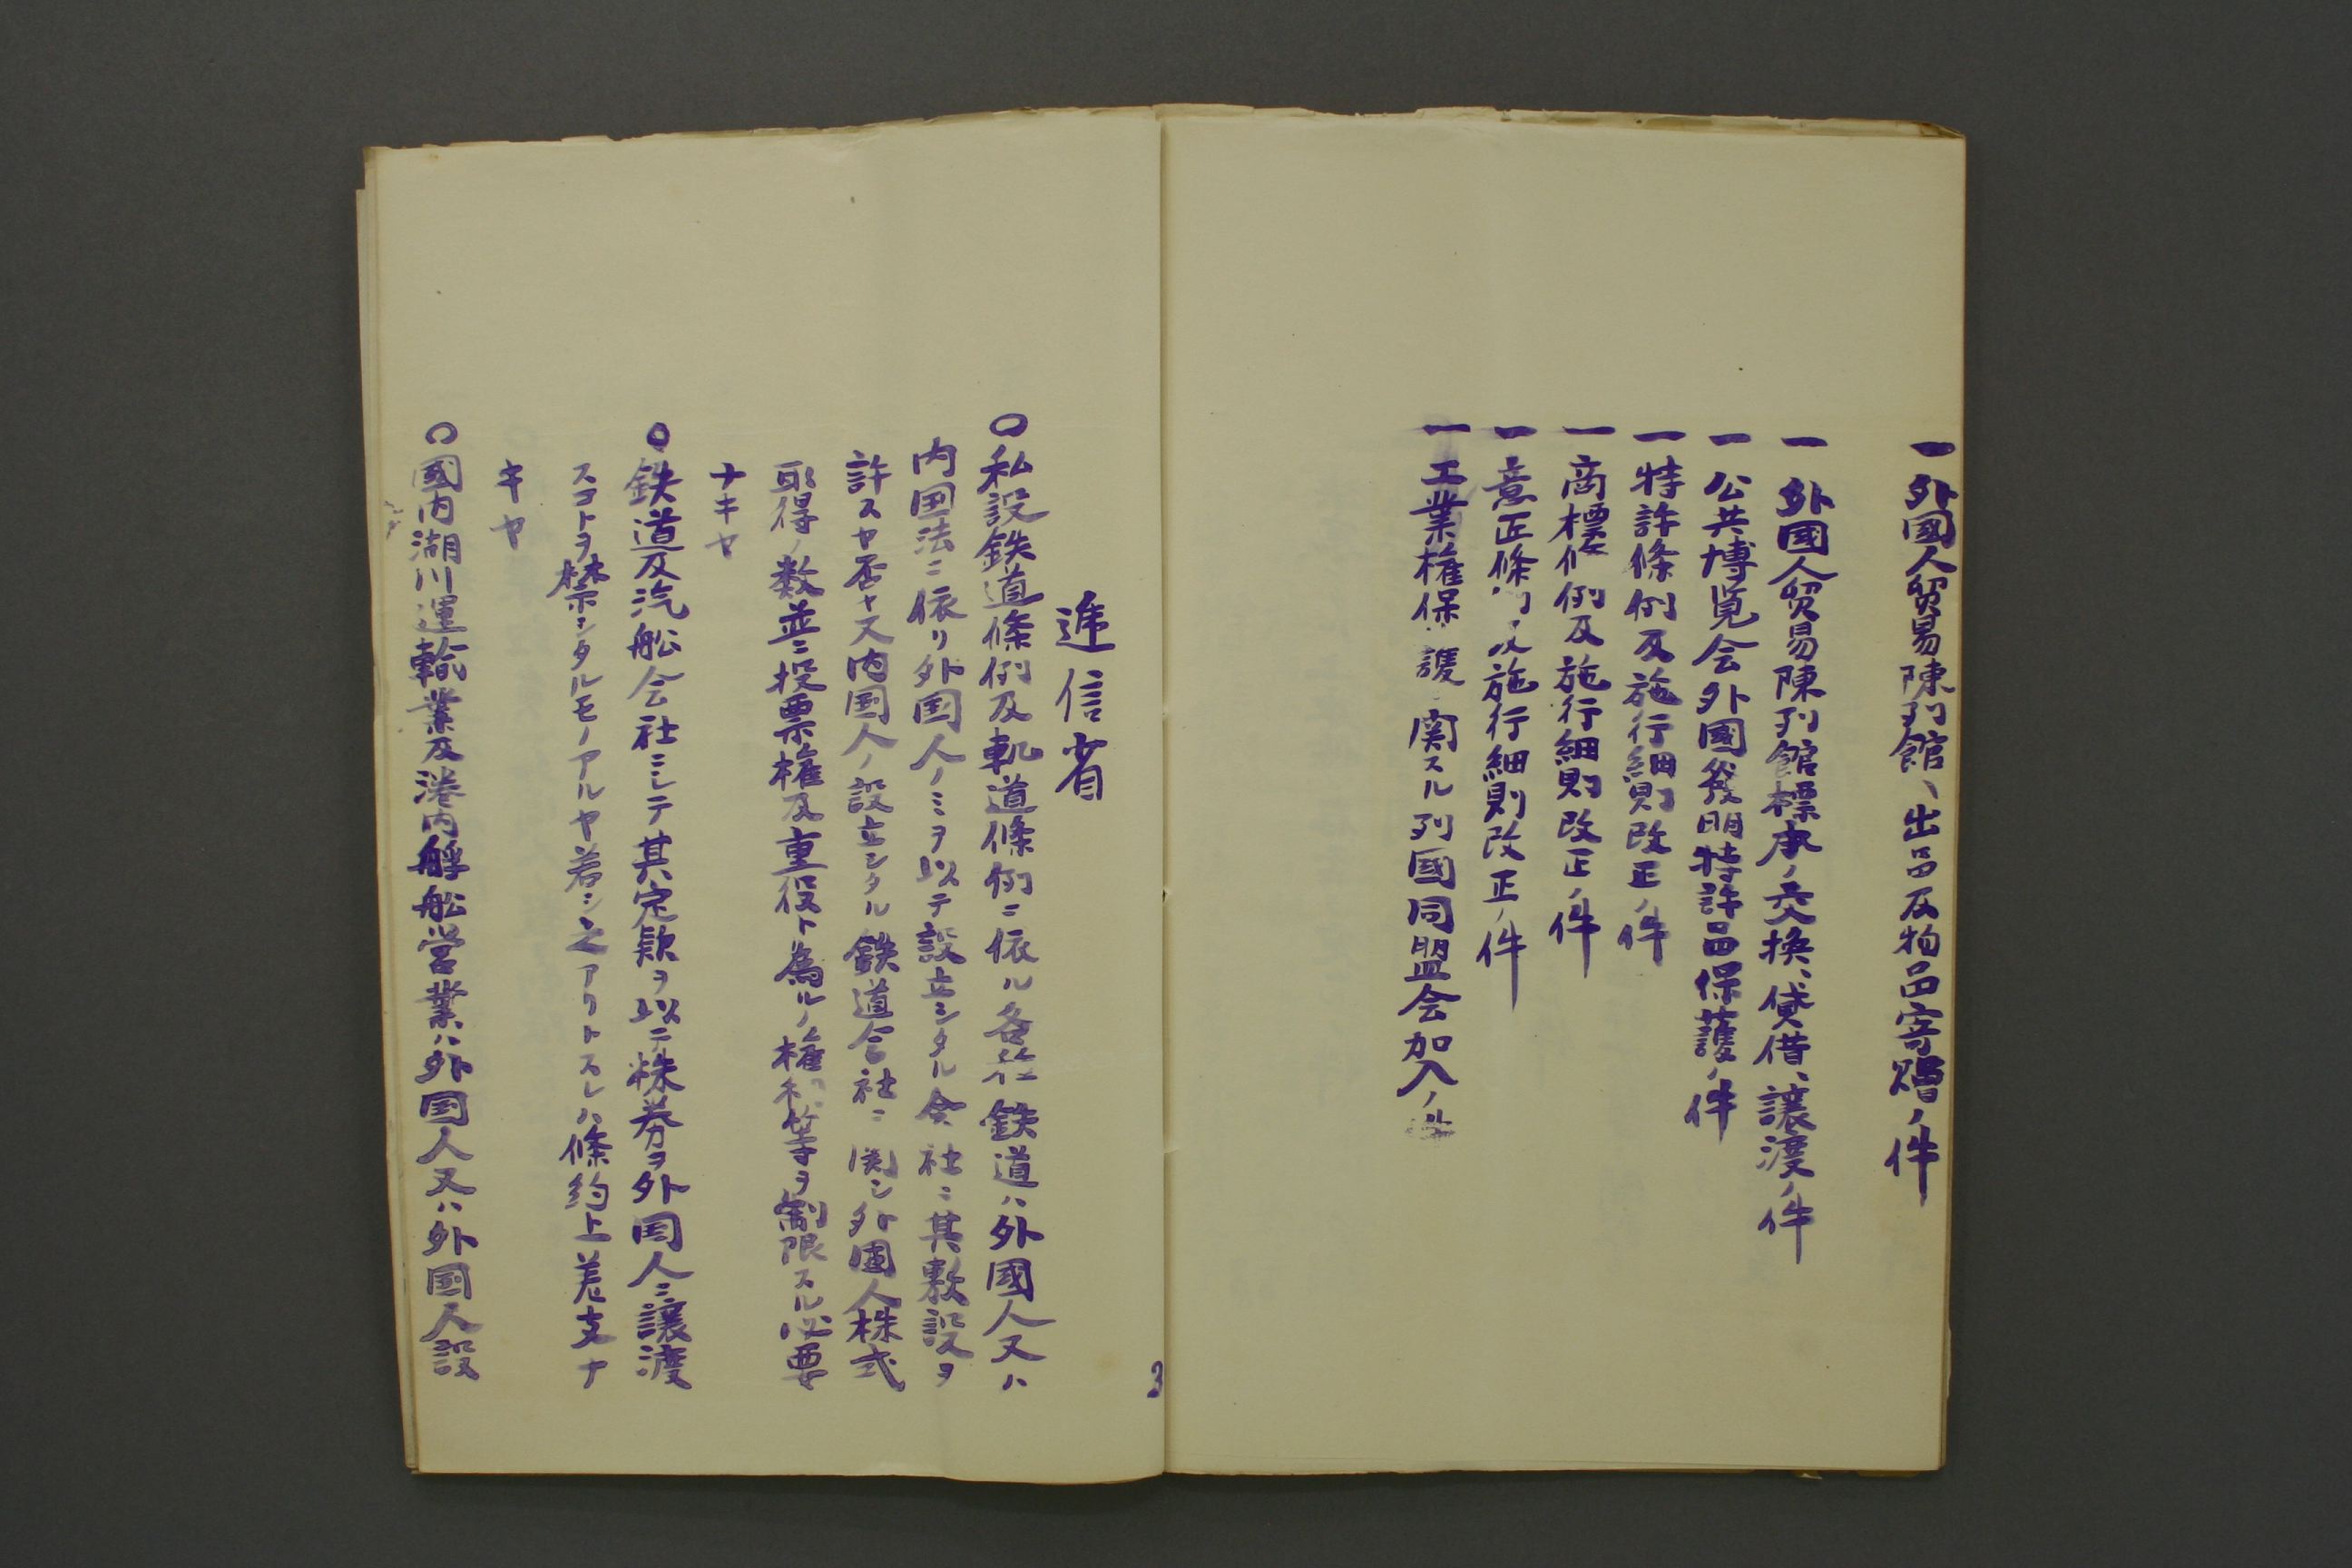 一外國人貿易陳列館、出品及物品寄贈ノ件
一外國人貿易陳列館標本ノ交換、貸借、譲渡ノ件
一公共博覧会外國發明特許品保護ノ件
一特許條例及施行細則改正ノ件
一商標條例及施行細則改正ノ件
一意匠條例及施行細則改正ノ件
一工業権保護 関スル列國同盟会加入ノ件
逓信省
〇私設鉄道條例及軌道條例ニ依ル各種鉄道ハ外國人又ハ
内国法ニ依リ外国人ノミヲ以テ設立シタル会社ニ其敷設ヲ
許スヤ否ヤ又内国人ノ設立シタル鉄道会社ニ関シ外国人株式
取得ノ数並ニ投票権及重役ト為ルノ権利等ヲ制限スル必要
ナキヤ
〇鉄道及汽船会社ニシテ其定款ヲ以テ株券ヲ外国人ニ譲渡
スコトヲ禁シタルモノアルヤ若シ之アリトスレハ條約上差支ナ
キヤ
〇國内湖川運輸業及港内艀船営業ハ外国人又ハ外国人設
3